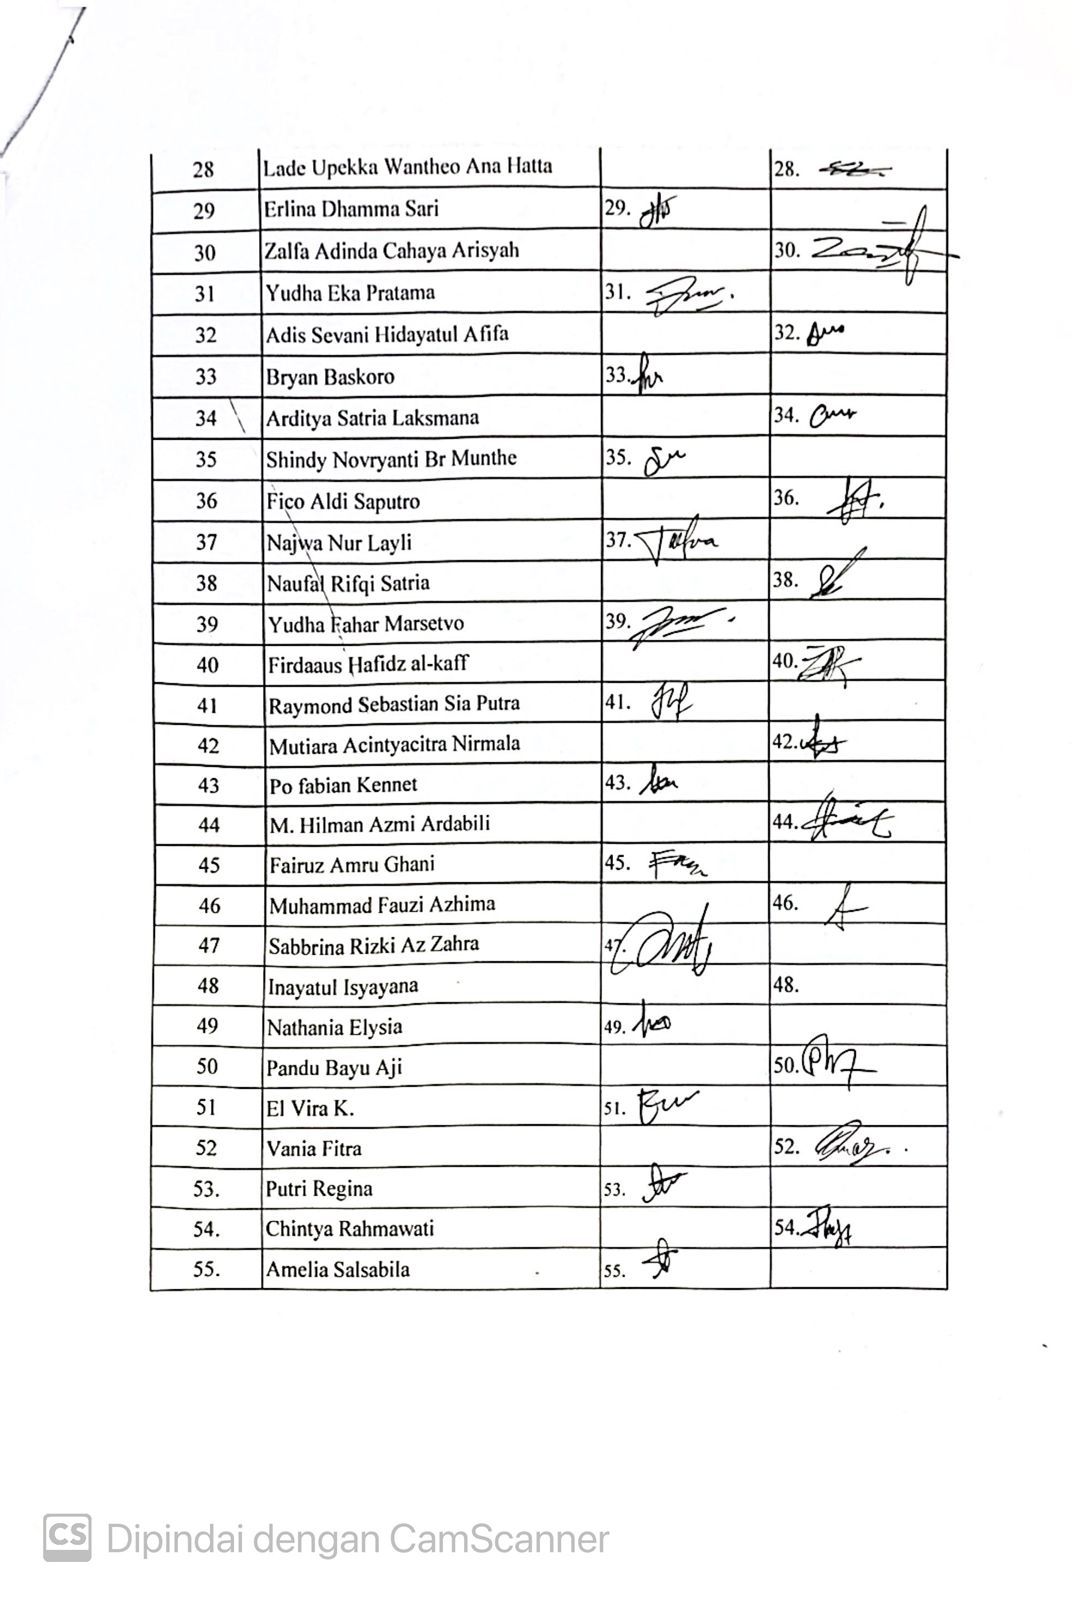 28 Lade Upekka Wantheo Ana Hatta 28.
29 Erlina Dhamma Sari 29.
30 Zalfa Adinda Cahaya Arisyah 30.
31 Yudha Eka Pratama 31.
32 Adis Sevani Hidayatul Afifa 32.
33 Bryan Baskoro 33.
34 Arditya Satria Laksmana 34.
35 Shindy Novryanti Br Munthe 35.
36 Fico Aldi Saputro 36.
37 Najwa Nur Layli 37.
38 Naufal Rifqi Satria 38.
39 Yudha Fahar Marsetvo 39.
40 Firdaaus Hafidz al-kaff 40.
41 Raymond Sebastian Sia Putra 41.
42 Mutiara Acintyacitra Nirmala 42.
43 Po fabian Kennet 43.
44 M. Hilman Azmi Ardabili 44.
45 Fairuz Amru Ghani 45.
46 Muhammad Fauzi Azhima 46.
47 Sabbrina Rizki Az Zahra 47.
48 Inayatul Isyayana 48.
49 Nathania Elysia 49.
50 Pandu Bayu Aji 50.
51 El Vira K. 51.
52 Vania Fitra 52.
53. Putri Regina 53.
54. Chintya Rahmawati 54.
55. Amelia Salsabila 55.
CS Dipindai dengan CamScanner